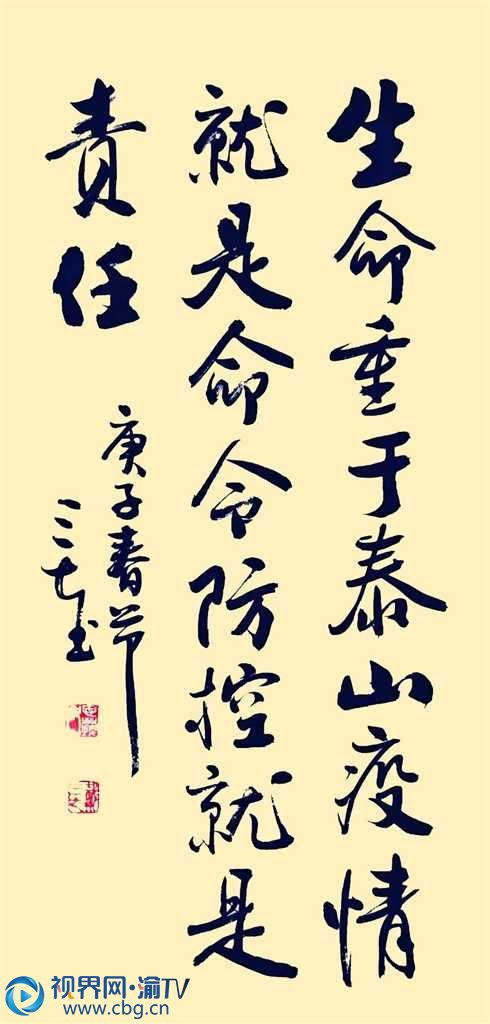 生命重于泰山疫情
就是命令防控就是
责任
庚子春节
视界网·渝TV
www.cbg.cn